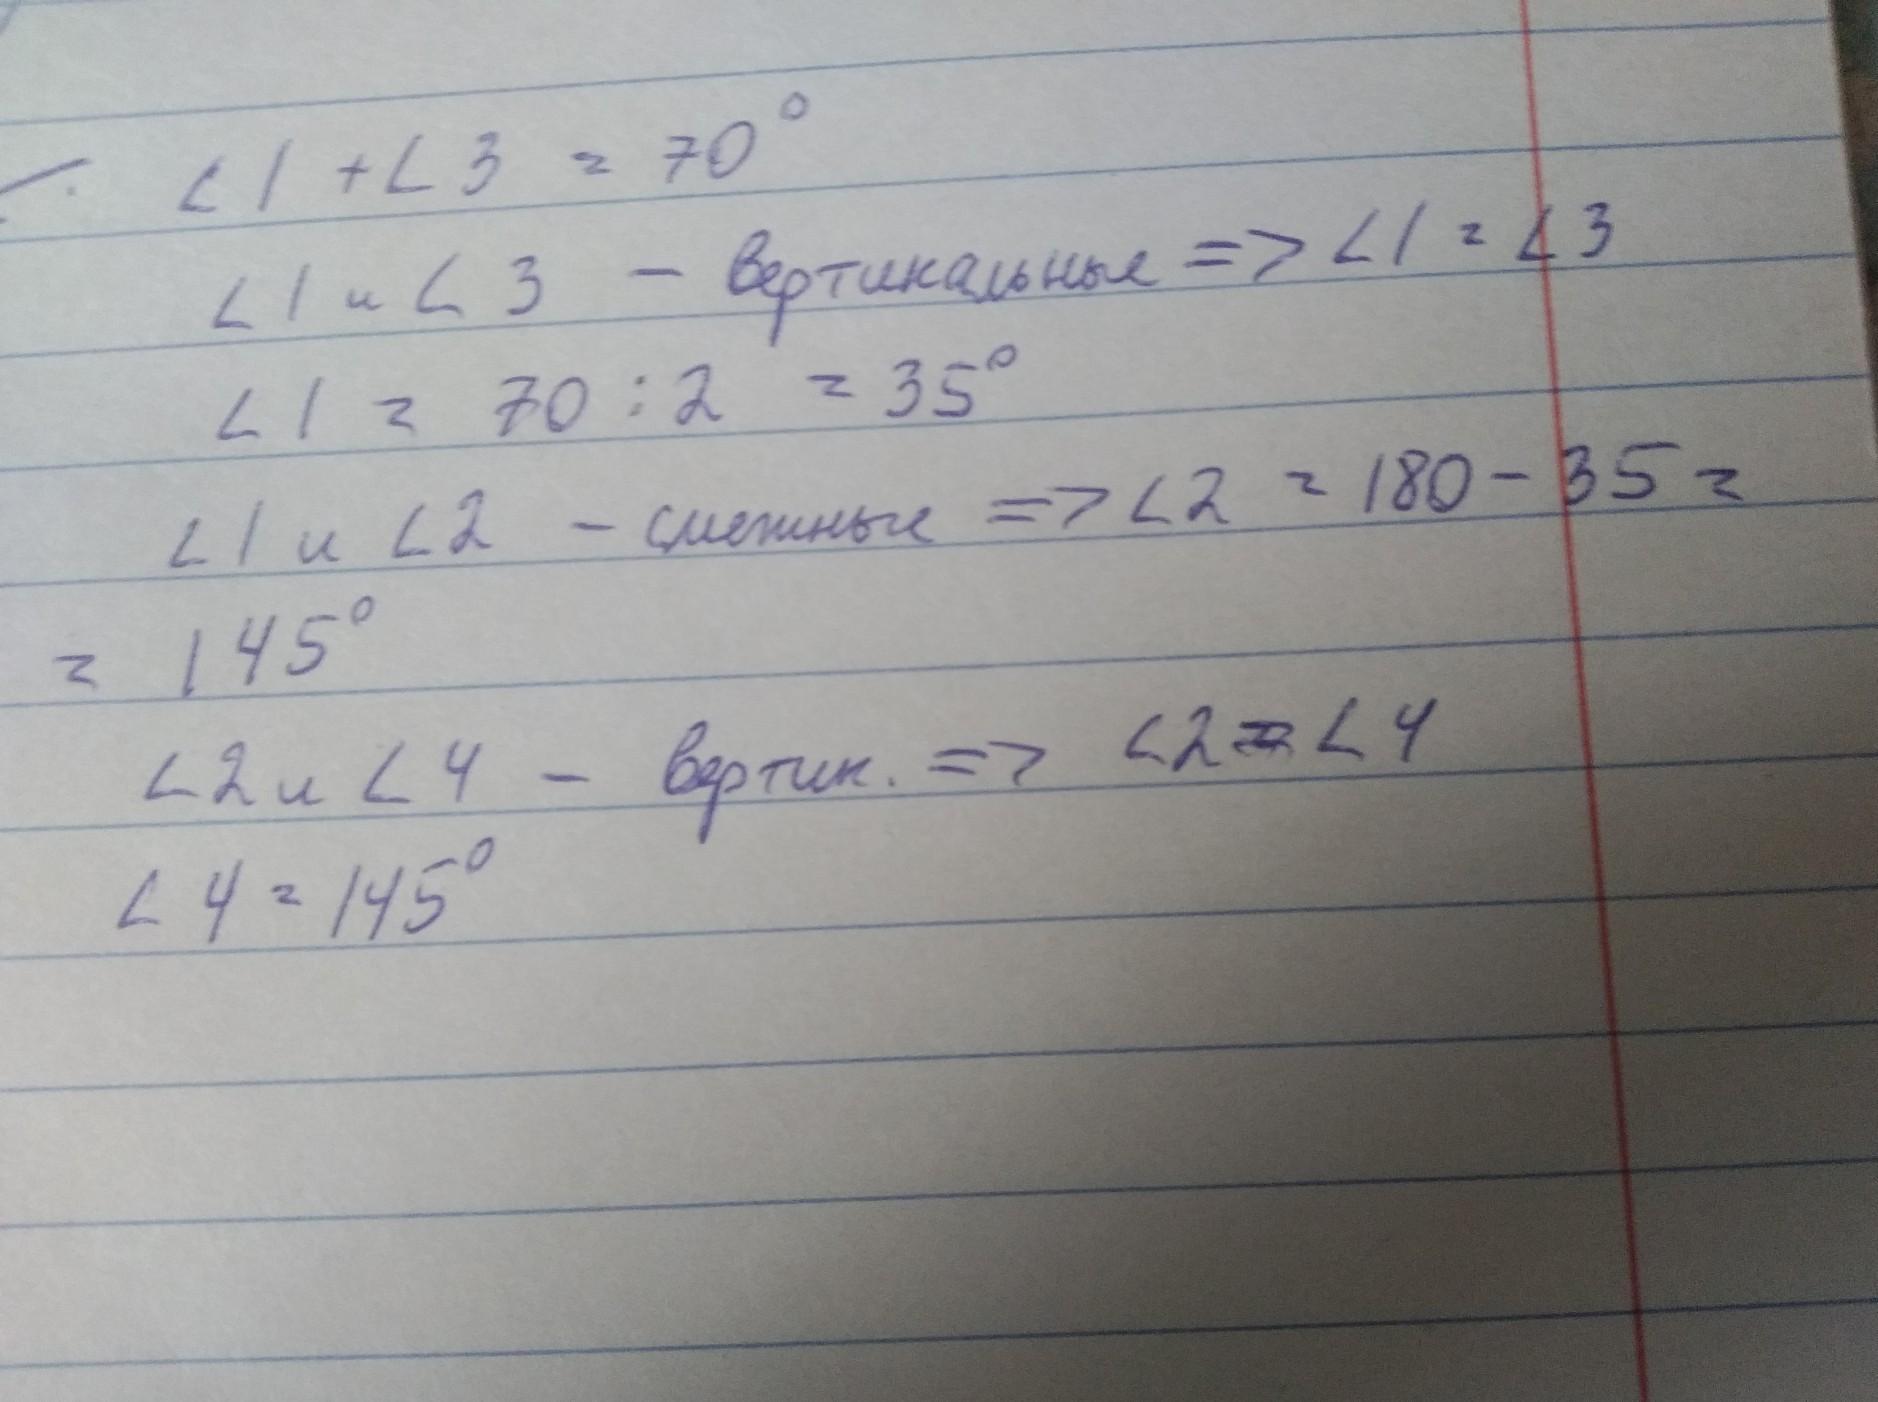 ∠1 + ∠3 = 70°
∠1 и ∠3 - вертикальные => ∠1 = ∠3
∠1 = 70 : 2 = 35°
∠1 и ∠2 - смежные => ∠2 = 180 - 35 =
= 145°
∠2 и ∠4 - вертик. => ∠2 = ∠4
∠4 = 145°